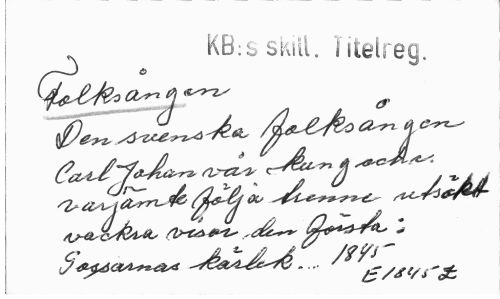 KB:s skill. Titelreg.
Folksången
Den svenska folksången
Carl Johan vår kung och c.
varjämte följa trenne utsökt
vackra visor den första:
Gossarnas kärlek... 1845
E 1845 £